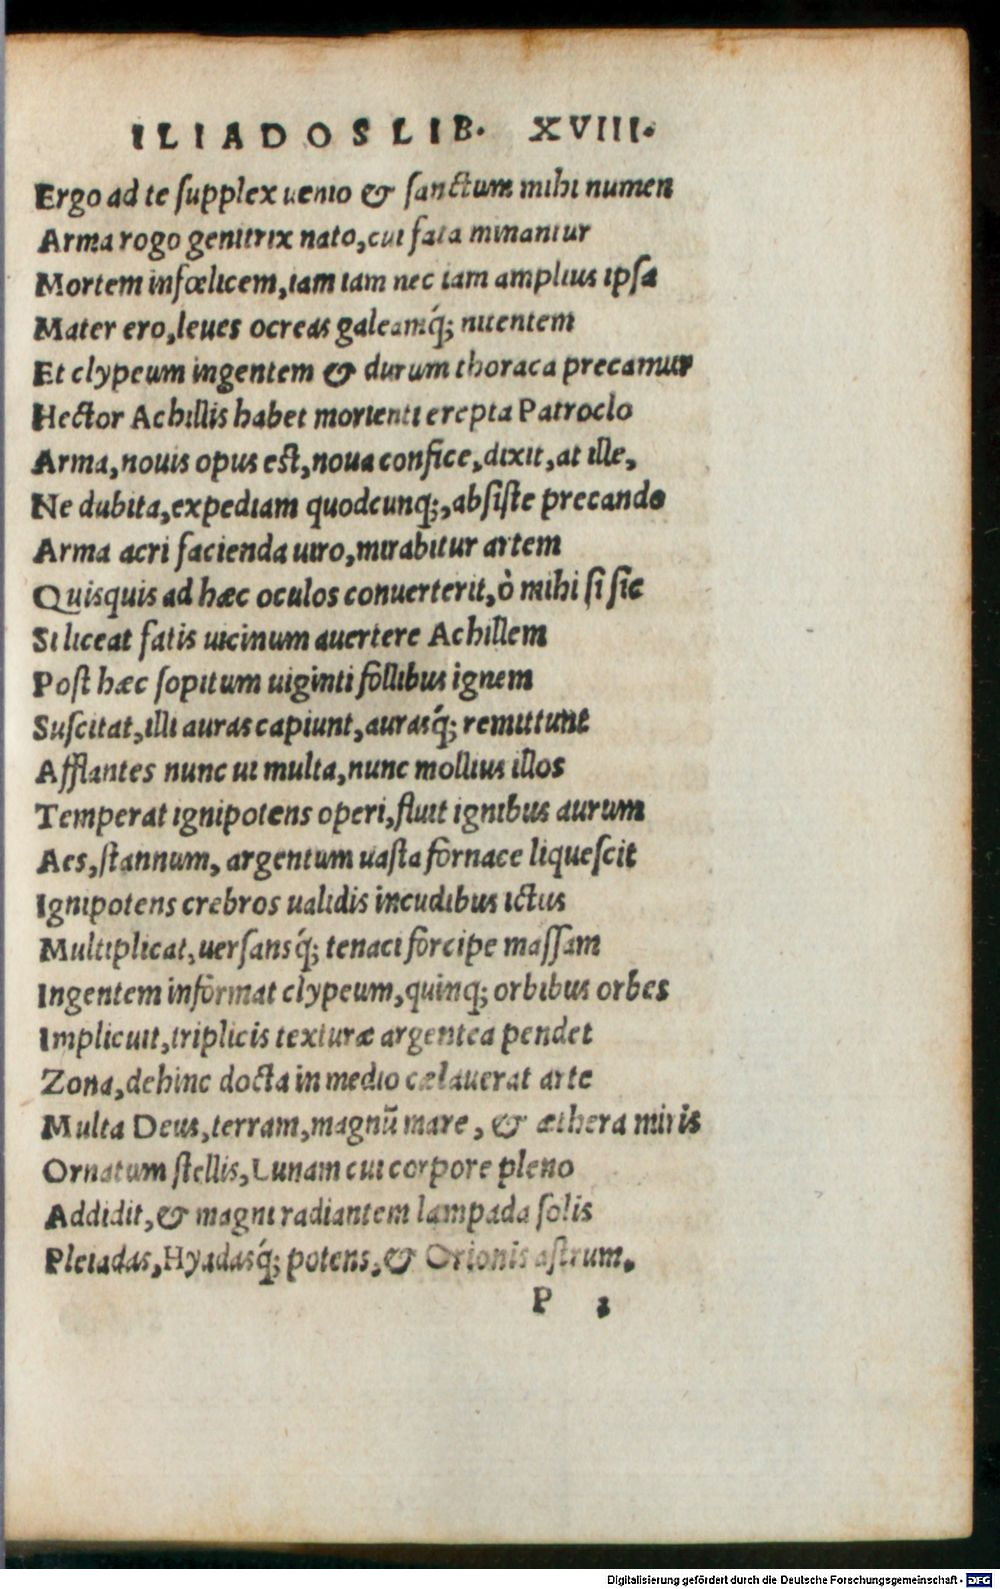 ILIADOS LIB. XVIII.
Ergo ad te supplex uenio & sanctum mihi numen
Arma rogo genitrix nato, cui fata minantur
Mortem infœlicem, iam iam nec iam amplius ipsa
Mater ero, leues ocreas galeamq́; nitentem
Et clypeum ingentem & durum thoraca precamur
Hector Achillis habet morienti erepta Patroclo
Arma, nouis opus est, noua confice, dixit, at ille,
Ne dubita, expediam quodcunq;, absiste precando
Arma acri facienda uiro, mirabitur artem
Quisquis ad hæc oculos conuerterit, ò mihi si sic
Si liceat fatis uicinum auertere Achillem
Post hæc sopitum uiginti follibus ignem
Suscitat, illi auras capiunt, aurasq́; remittunt
Afflantes nunc ui multa, nunc mollius illos
Temperat ignipotens operi, fluit ignibus aurum
Aes, stannum, argentum uasta fornace liquescit
Ignipotens crebros ualidis incudibus ictus
Multiplicat, uersansq́; tenaci forcipe massam
Ingentem informat clypeum, quinq; orbibus orbes
Implicuit, triplicis texturæ argentea pendet
Zona, dehinc docta in medio cælauerat arte
Multa Deus, terram, magnũ mare, & æthera miris
Ornatum stellis, Lunam cui corpore pleno
Addidit, & magni radiantem lampada solis
Pleiadas, Hyadasq́; potens, & Orionis astrum.
P 2
Digitalisierung gefördert durch die Deutsche Forschungsgemeinschaft - DFG